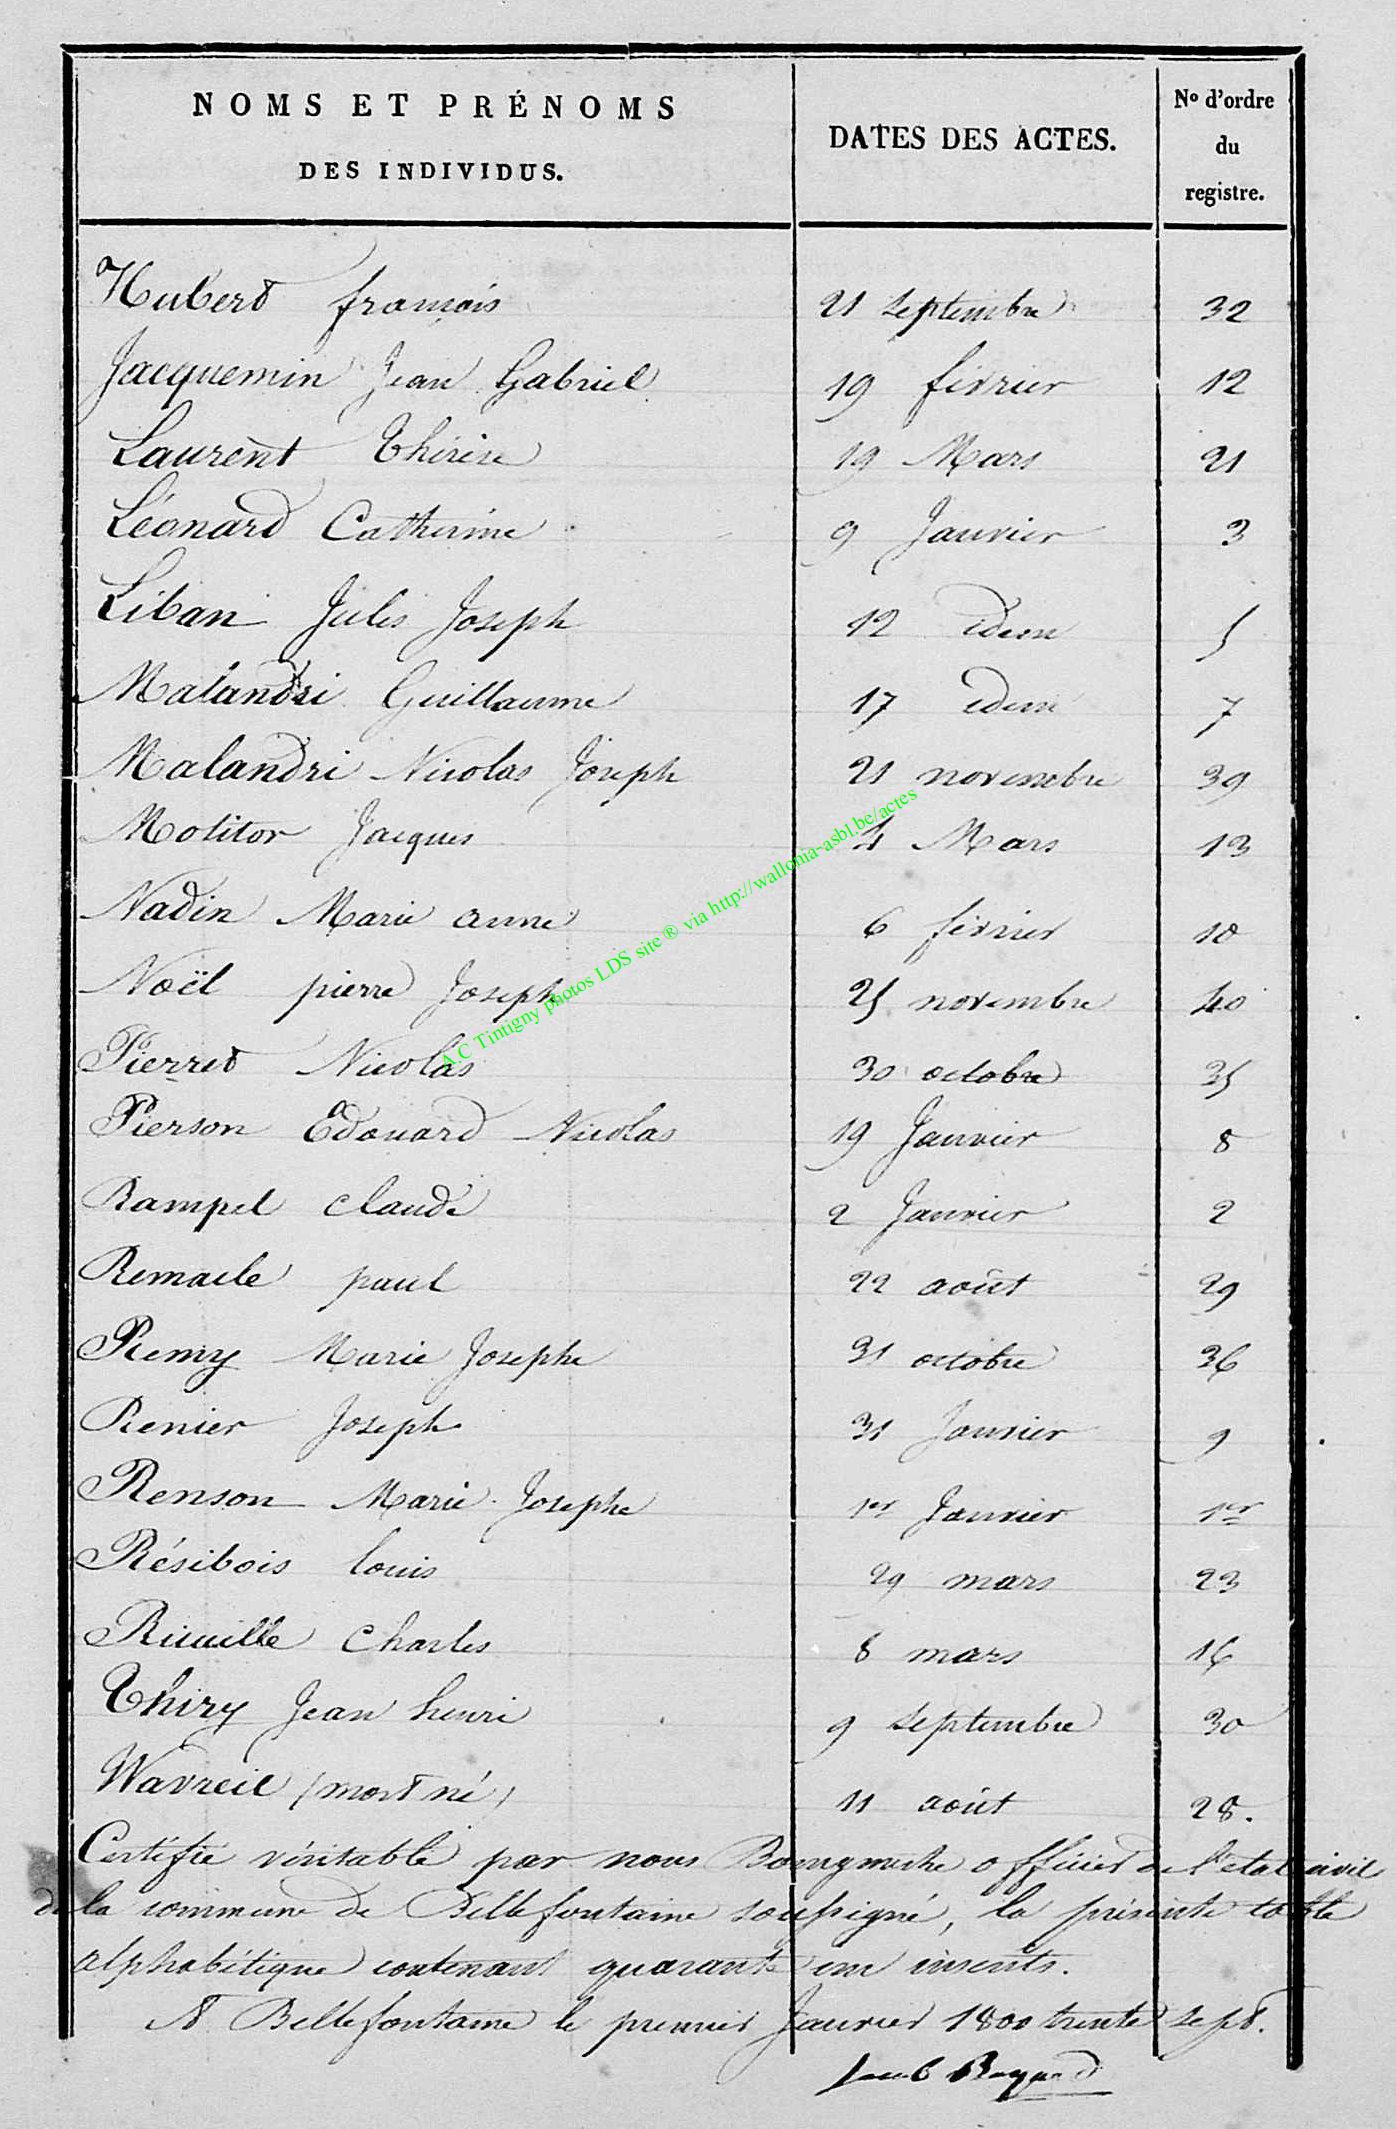 NOMS ET PRÉNOMS
DES INDIVIDUS.
DATES DES ACTES.
Nº d'ordre
du
registre.
Hubert françois 21 septembre 32
Jacquemin Jean Gabriel 19 février 12
Laurent Thérèse 19 Mars 21
Léonard Catherine 9 Janvier 3
Liban Jules Joseph 12 idem 5
Malandri Guillaume 17 idem 7
Malandri Nicolas Joseph 21 novembre 39
Molitor Jacques 4 Mars 13
Nadin Marie anne 6 février 10
Noël pierre Joseph 25 novembre 40
Pierret Nicolas 30 octobre 35
Pierson Edouard Nicolas 19 Janvier 8
Rampel claude 2 Janvier 2
Remacle paul 22 août 29
Remy Marie Josephe 31 octobre 36
Renier Joseph 31 Janvier 9
Renson Marie Josephe 1er Janvier 1er
Résibois louis 29 mars 23
Charles 8 mars 16
Thiry Jean henri 9 septembre 30
Wavreil (mort né) 11 août 28.
Certifié véritable par nous Bourgmestre officier de l'etat civil
de la commune de Bellefontaine soussigné, la présente table
alphabétique contenant quarante un inscrits.
A Bellefontaine le premier Janvier 1800 trente sept.
A.C Tintigny photos LDS site ® via http://wallonia-asbl.be/actes